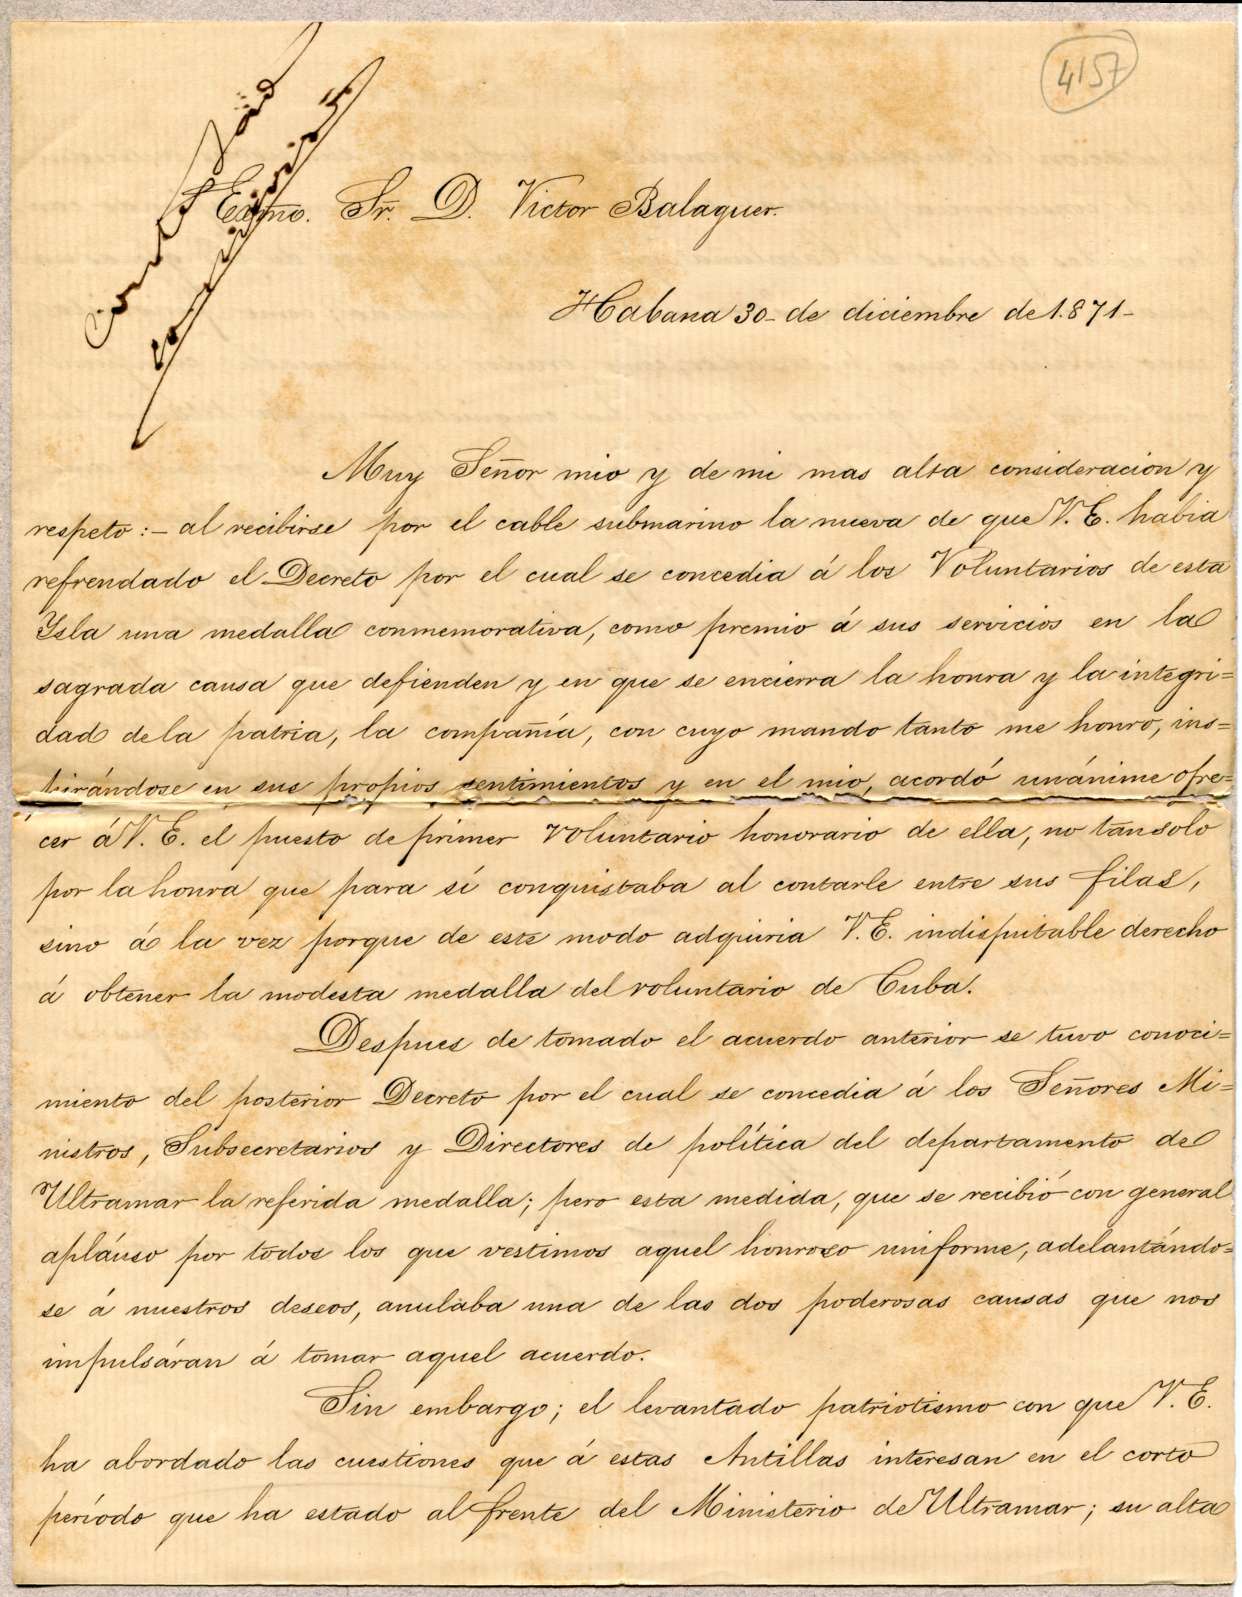 4157
Exmo. Sr. D. Victor Balaguer.
Habana 30 - de diciembre de 1.871 -
Muy Señor mio y de mi mas alta consideracion y
respeto: - al recibirse por el cable submarino la nueva de que V. E. habia
refrendado el Decreto por el cual se concedia á los Voluntarios de esta
Ysla una medalla conmemorativa, como premio á sus servicios en la
sagrada causa que defienden y en que se encierra la honra y la integri=
dad de la patria, la compañía, con cuyo mando tanto me honro, ins=
pirándose en sus propios sentimientos y en el mio, acordó unánime ofre=
cer á V. E. el puesto de primer voluntario honorario de ella, no tan solo
por la honra que para sí conquistaba al contarle entre sus filas,
sino á la vez porque de este modo adquiria V. E. indisputable derecho
á obtener la modesta medalla del voluntario de Cuba.
Despues de tomado el acuerdo anterior se tuvo conoci=
miento del posterior Decreto por el cual se concedia á los Señores Mi=
nistros, Subsecretarios y Directores de política del departamento de
Ultramar la referida medalla; pero esta medida, que se recibió con general
apláuso por todos los que vestimos aquel honroso uniforme, adelantándo=
se á nuestros deseos, anulaba una de las dos poderosas causas que nos
impulsáran á tomar aquel acuerdo.
Sin embargo; el levantado patriotismo con que V. E.
ha abordado las cuestiones que á estas Antillas interesan en el corto
período que ha estado al frente del Ministerio de Ultramar; su alta